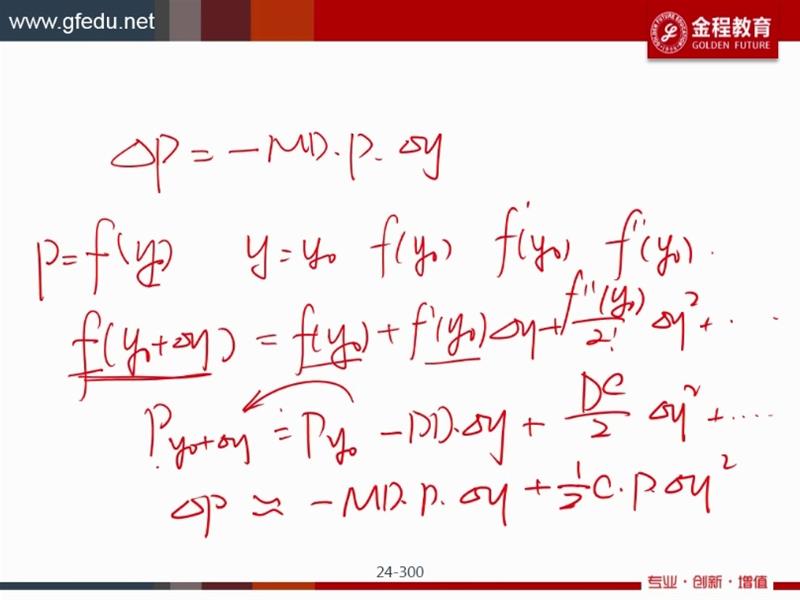 www.gfedu.net
金程教育
GOLDEN FUTURE
ΔP = -MD.P.Δy
P = f(y₀) y = y₀ f(y₀) f'(y₀) f''(y₀).
f(y₀+Δy) = f(y₀) + f'(y₀)Δy + f''(y₀)/2! Δy² + ...
P y₀+Δy ≐ P y₀ - DD.Δy + DC/2 Δy² + ....
ΔP ≈ -MD.P.Δy + 1/2 C.P.Δy²
24-300
专业·创新·增值